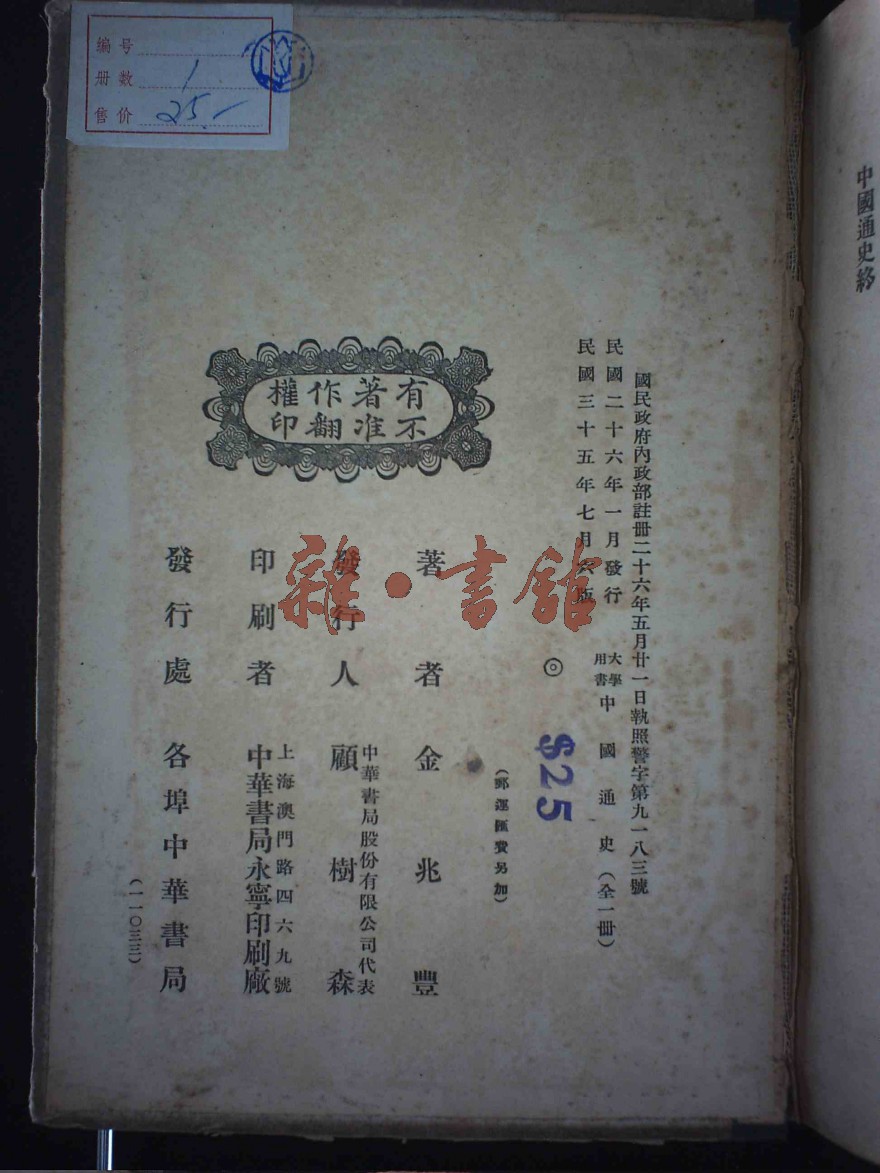 编号
册数 1
售价 25.—
中國通史終
國民政府內政部註冊二十六年五月廿一日執照警字第九一八三號
民國二十六年一月發行
民國三十五年七月六版
大學用書 中國通史(全一冊)
◎
$25
(郵運匯費另加)
有著作權
不准翻印
著者 金兆豐
發行人 中華書局股份有限公司代表
顧樹森
印刷者 上海澳門路四六九號
中華書局永寧印刷廠
發行處 各埠中華書局
(一一〇三三)
雜·書館